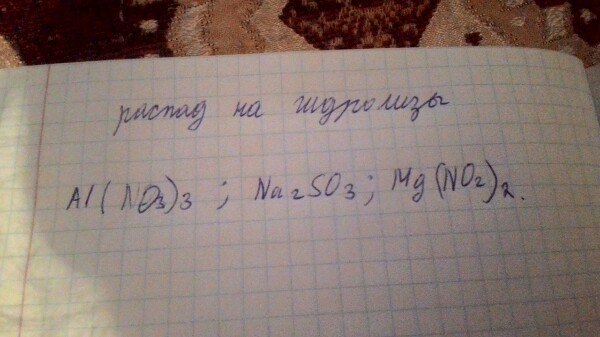 распад на гидролизы
Al(NO3)3 ; Na2SO3; Mg(NO2)2.